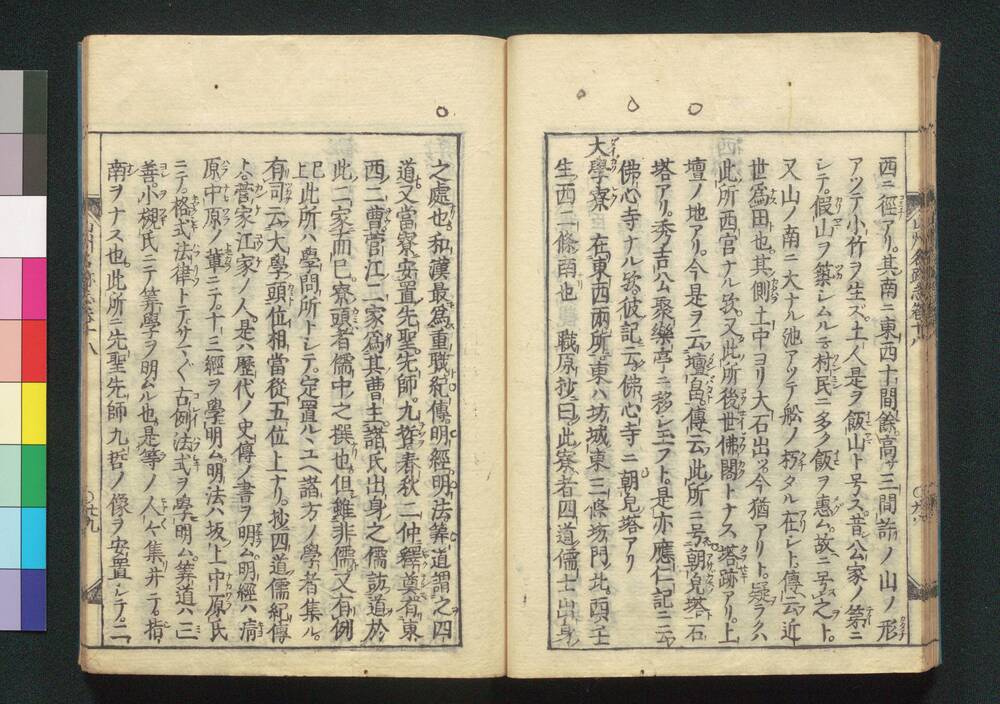 西ニ徑アリ。其南ニ東西十間餘高サ三間許ノ山ノ形
アツテ小竹ヲ生ズ。土人是ヲ飯山ト号ス。昔公家ノ第ニ
シテ。假山ヲ築シムルニ村民ニ多ク飯ヲ惠ム。故ニ号之ト。
又山ノ南ニ大ナル池アツテ船ノ朽タル在シト。傳云近
世爲田也。其側土中ヨリ大石出ツ。今猶アリト。疑ラクハ
此所西宮ナル歟。又此所後世佛閣トナス塔跡アリ。上
壇ノ地アリ。今是ヲ云壇畠。傳云此所ニ号朝皃塔石
塔アリ。秀吉公聚樂亭ニ移シ玉フト。是亦應仁記ニ云
佛心寺ナル歟。彼記云佛心寺ニ朝皃塔アリ
大學寮 在東西兩所東ハ坊城東三條坊門北西ハ壬
生西二條南也 職原抄曰此寮者四道儒士出身
之處也。和漢最爲重職紀傳明經明法筭道謂之四
道又當寮安置先聖先師。九哲春秋二仲釋奠有東
西二曹菅江二家爲其曹主諸氏出身之儒訪道於
此二家而巳寮頭者儒中之撰也但雖非儒又有例
巳上此所ハ學問所トシテ。定置ルヽユヘ諸方ノ學者集ル。
有司云大學頭位相當從五位上ナリ。抄四道儒紀傳
ト菅家江家ノ人。是ハ歷代ノ史傳ノ書ヲ明ム。明經ハ清
原中原ノ輩ニテ。十三經ヲ學明ム。明法ハ坂上中原氏
ニテ。格式法律トテサマ〲古例法式ヲ學明ム。筭道ハ三
善。小槻氏ニテ筭學ヲ明ムル也。是等ノ人々集井テ。指
南ヲナス也。此所ニ先聖先師九哲ノ像ヲ安置シテ。二